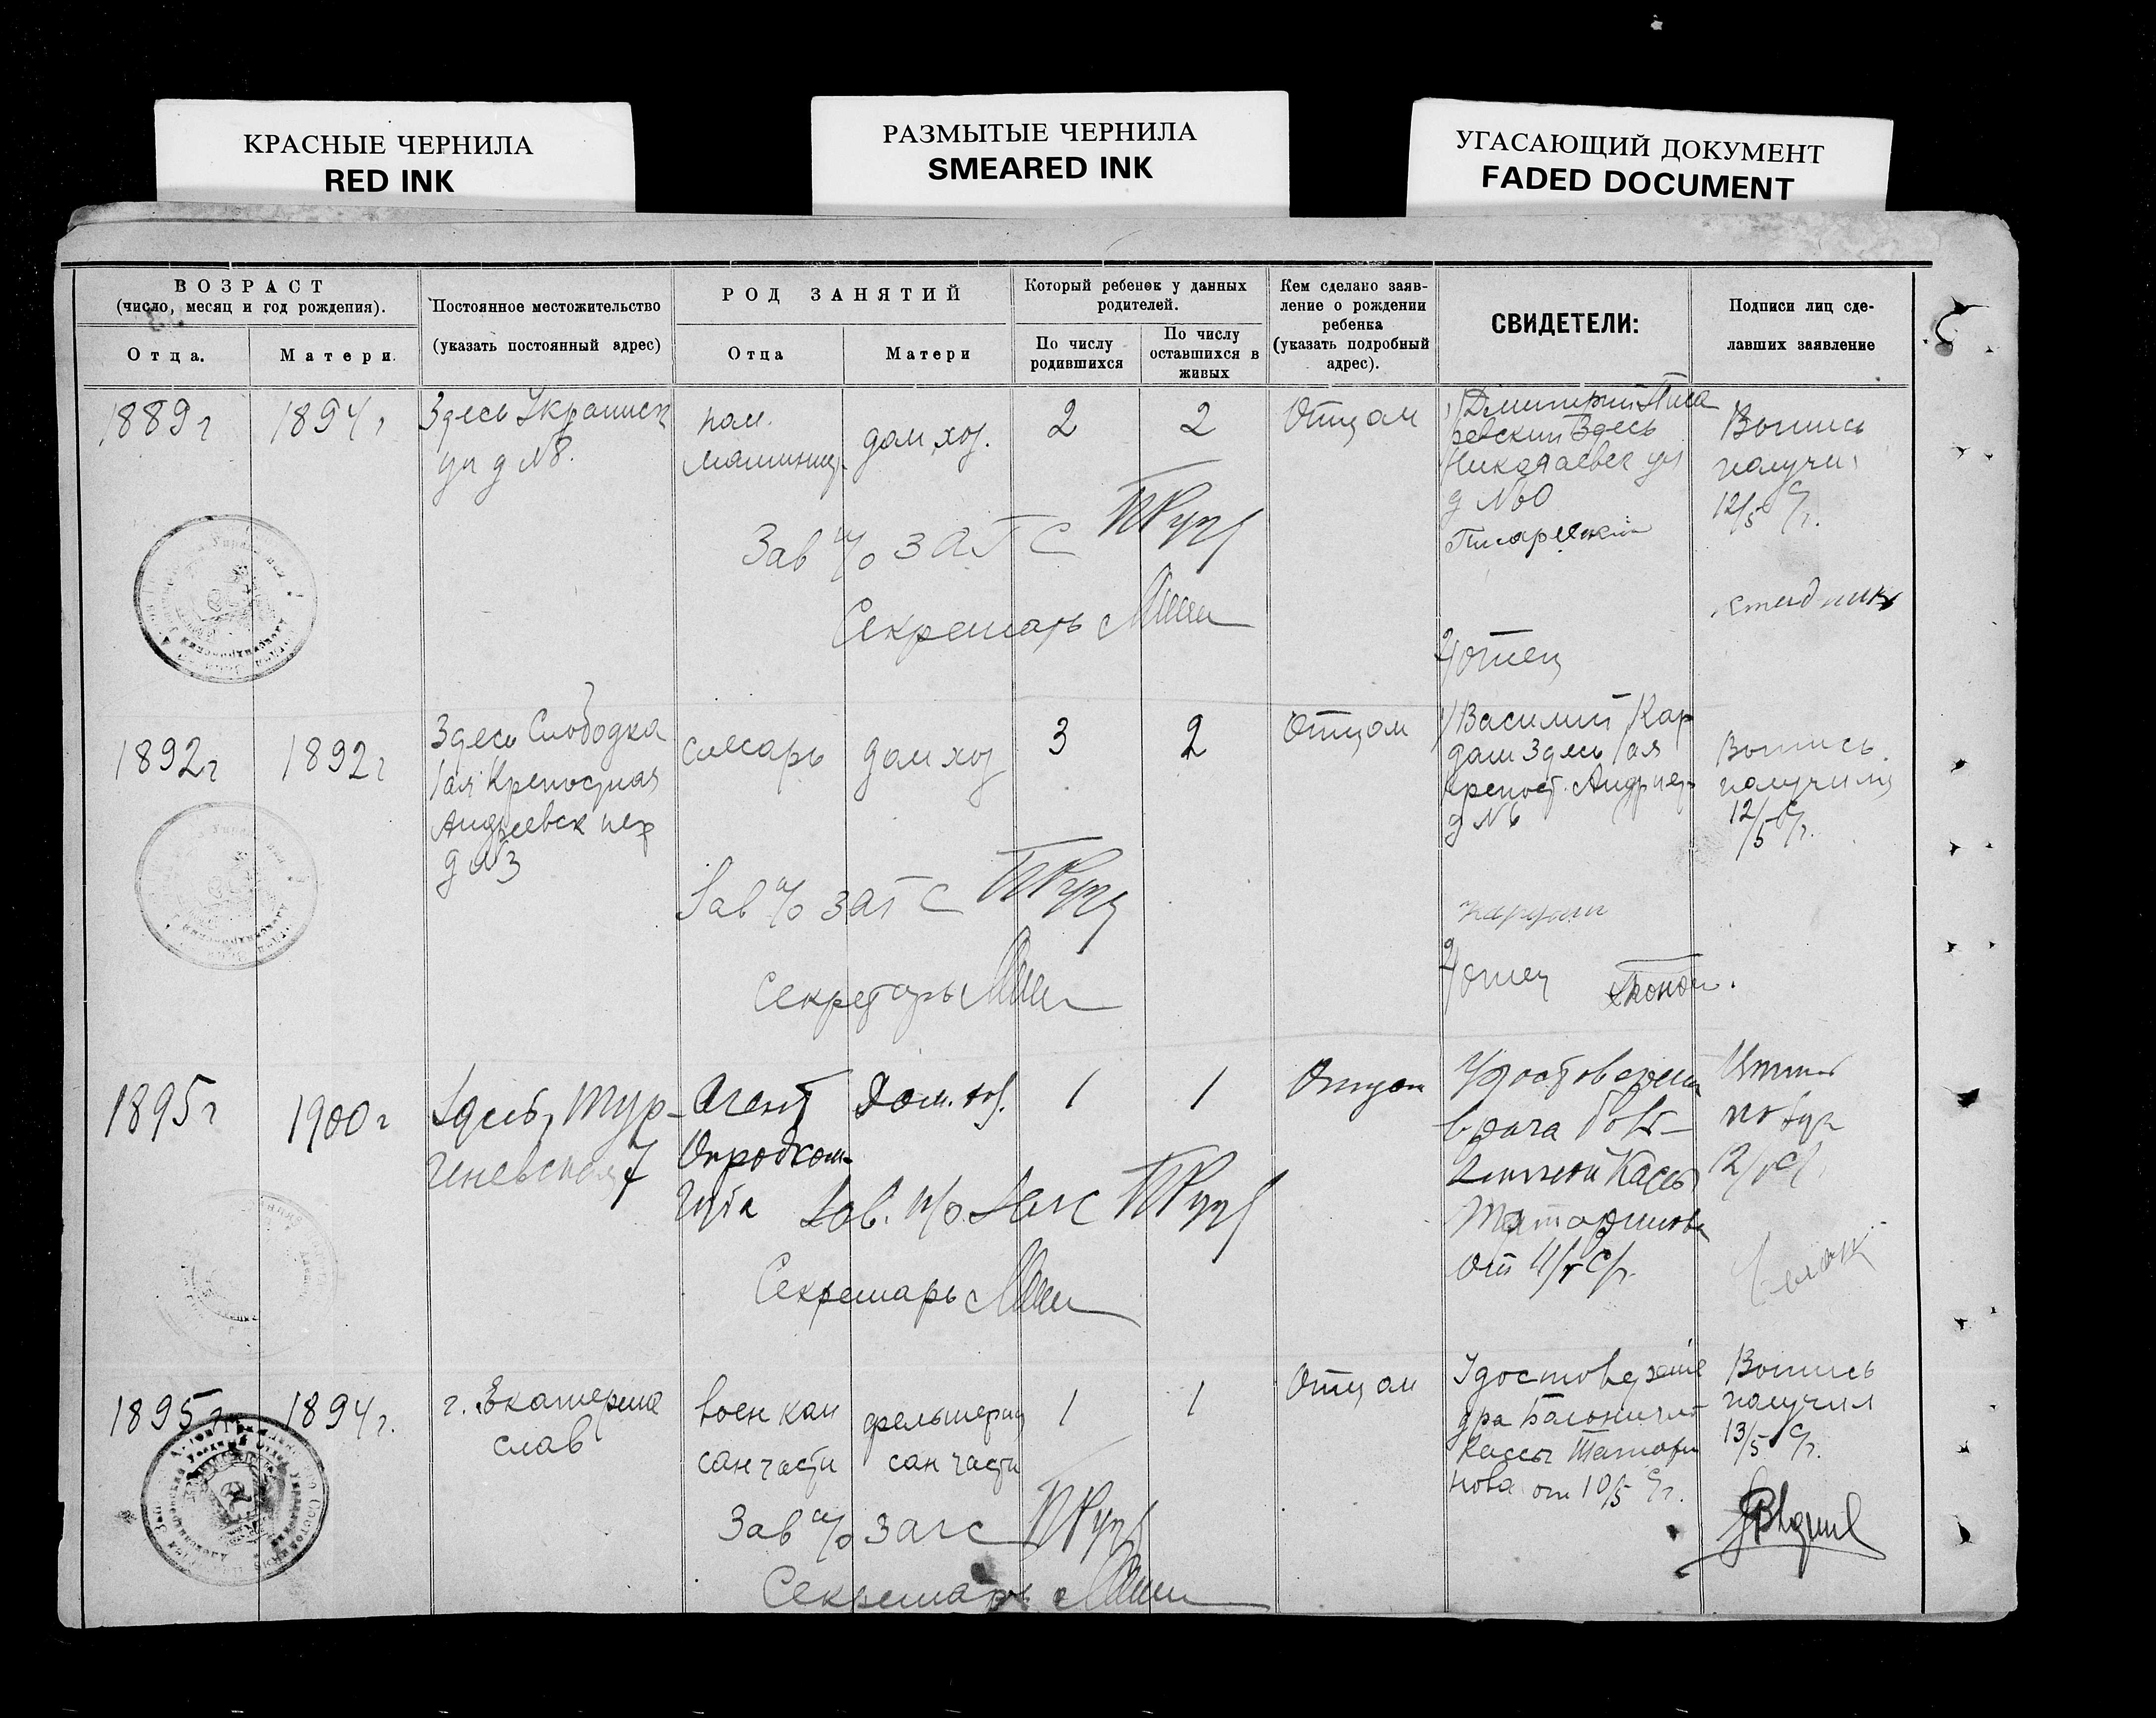 КРАСНЫЕ ЧЕРНИЛА
RED INK
РАЗМЫТЫЕ ЧЕРНИЛА
SMEARED INK
УГАСАЮЩИЙ ДОКУМЕНТ
FADED DOCUMENT
ВОЗРАСТ
(число, месяц и год рождения).
Отца.
Матери.
Постоянное местожительство
(указать постоянный адрес)
РОД ЗАНЯТИЙ
Отца
Матери
Который ребенок у данных
родителей.
По числу
родившихся
По числу
оставшихся в
живых
Кем сделано заяв-
ление о рождении
ребенка
(указать подробный
адрес).
СВИДЕТЕЛИ:
Подписи лиц сде-
лавших заявление
1889 г
1894 г
Здесь Украинск
ул д №8.
пом.
машинис
дом хоз.
2
2
Отцом
1/ Дмитрий Писа
ревский Здесь
Николаевск ул
д №
Писаревский
2/ отец
Выпись
получил
12/5 с/г.
Зав п/о ЗАГС
Секретарь
1892 г
1892 г
Здесь Слободка
1ая Крепостная
Андреевск пер
д №3
слесарь
дом хоз
3
2
Отцом
1/ Василий Кар
даш Здесь 1ая
крепост. Андр пер
д №6
Кардаш
2/ отец
Выпись
получил
12/5 с/г.
Зав п/о ЗАГС
Секретарь
1895 г
1900 г
Здесь, Тур-
геневская 7
Агент
Опродком-
дом. хоз.
1
1
Отцом
Удостоверени
врача Боль-
ничной Кассы
Татаринова
от 11/5 с/г.
12/5 с/г.
Зав. п/о Загс
Секретарь
1895 г.
1894 г.
г. Екатерино
слав
воен ком
сан части
фельшерица
сан части
1
1
Отцом
Удостоверение
д-ра Больничной
кассы Татари
нова от 10/5 с/г.
Выпись
получил
13/5 с/г.
Зав п/о Загс
Секретарь